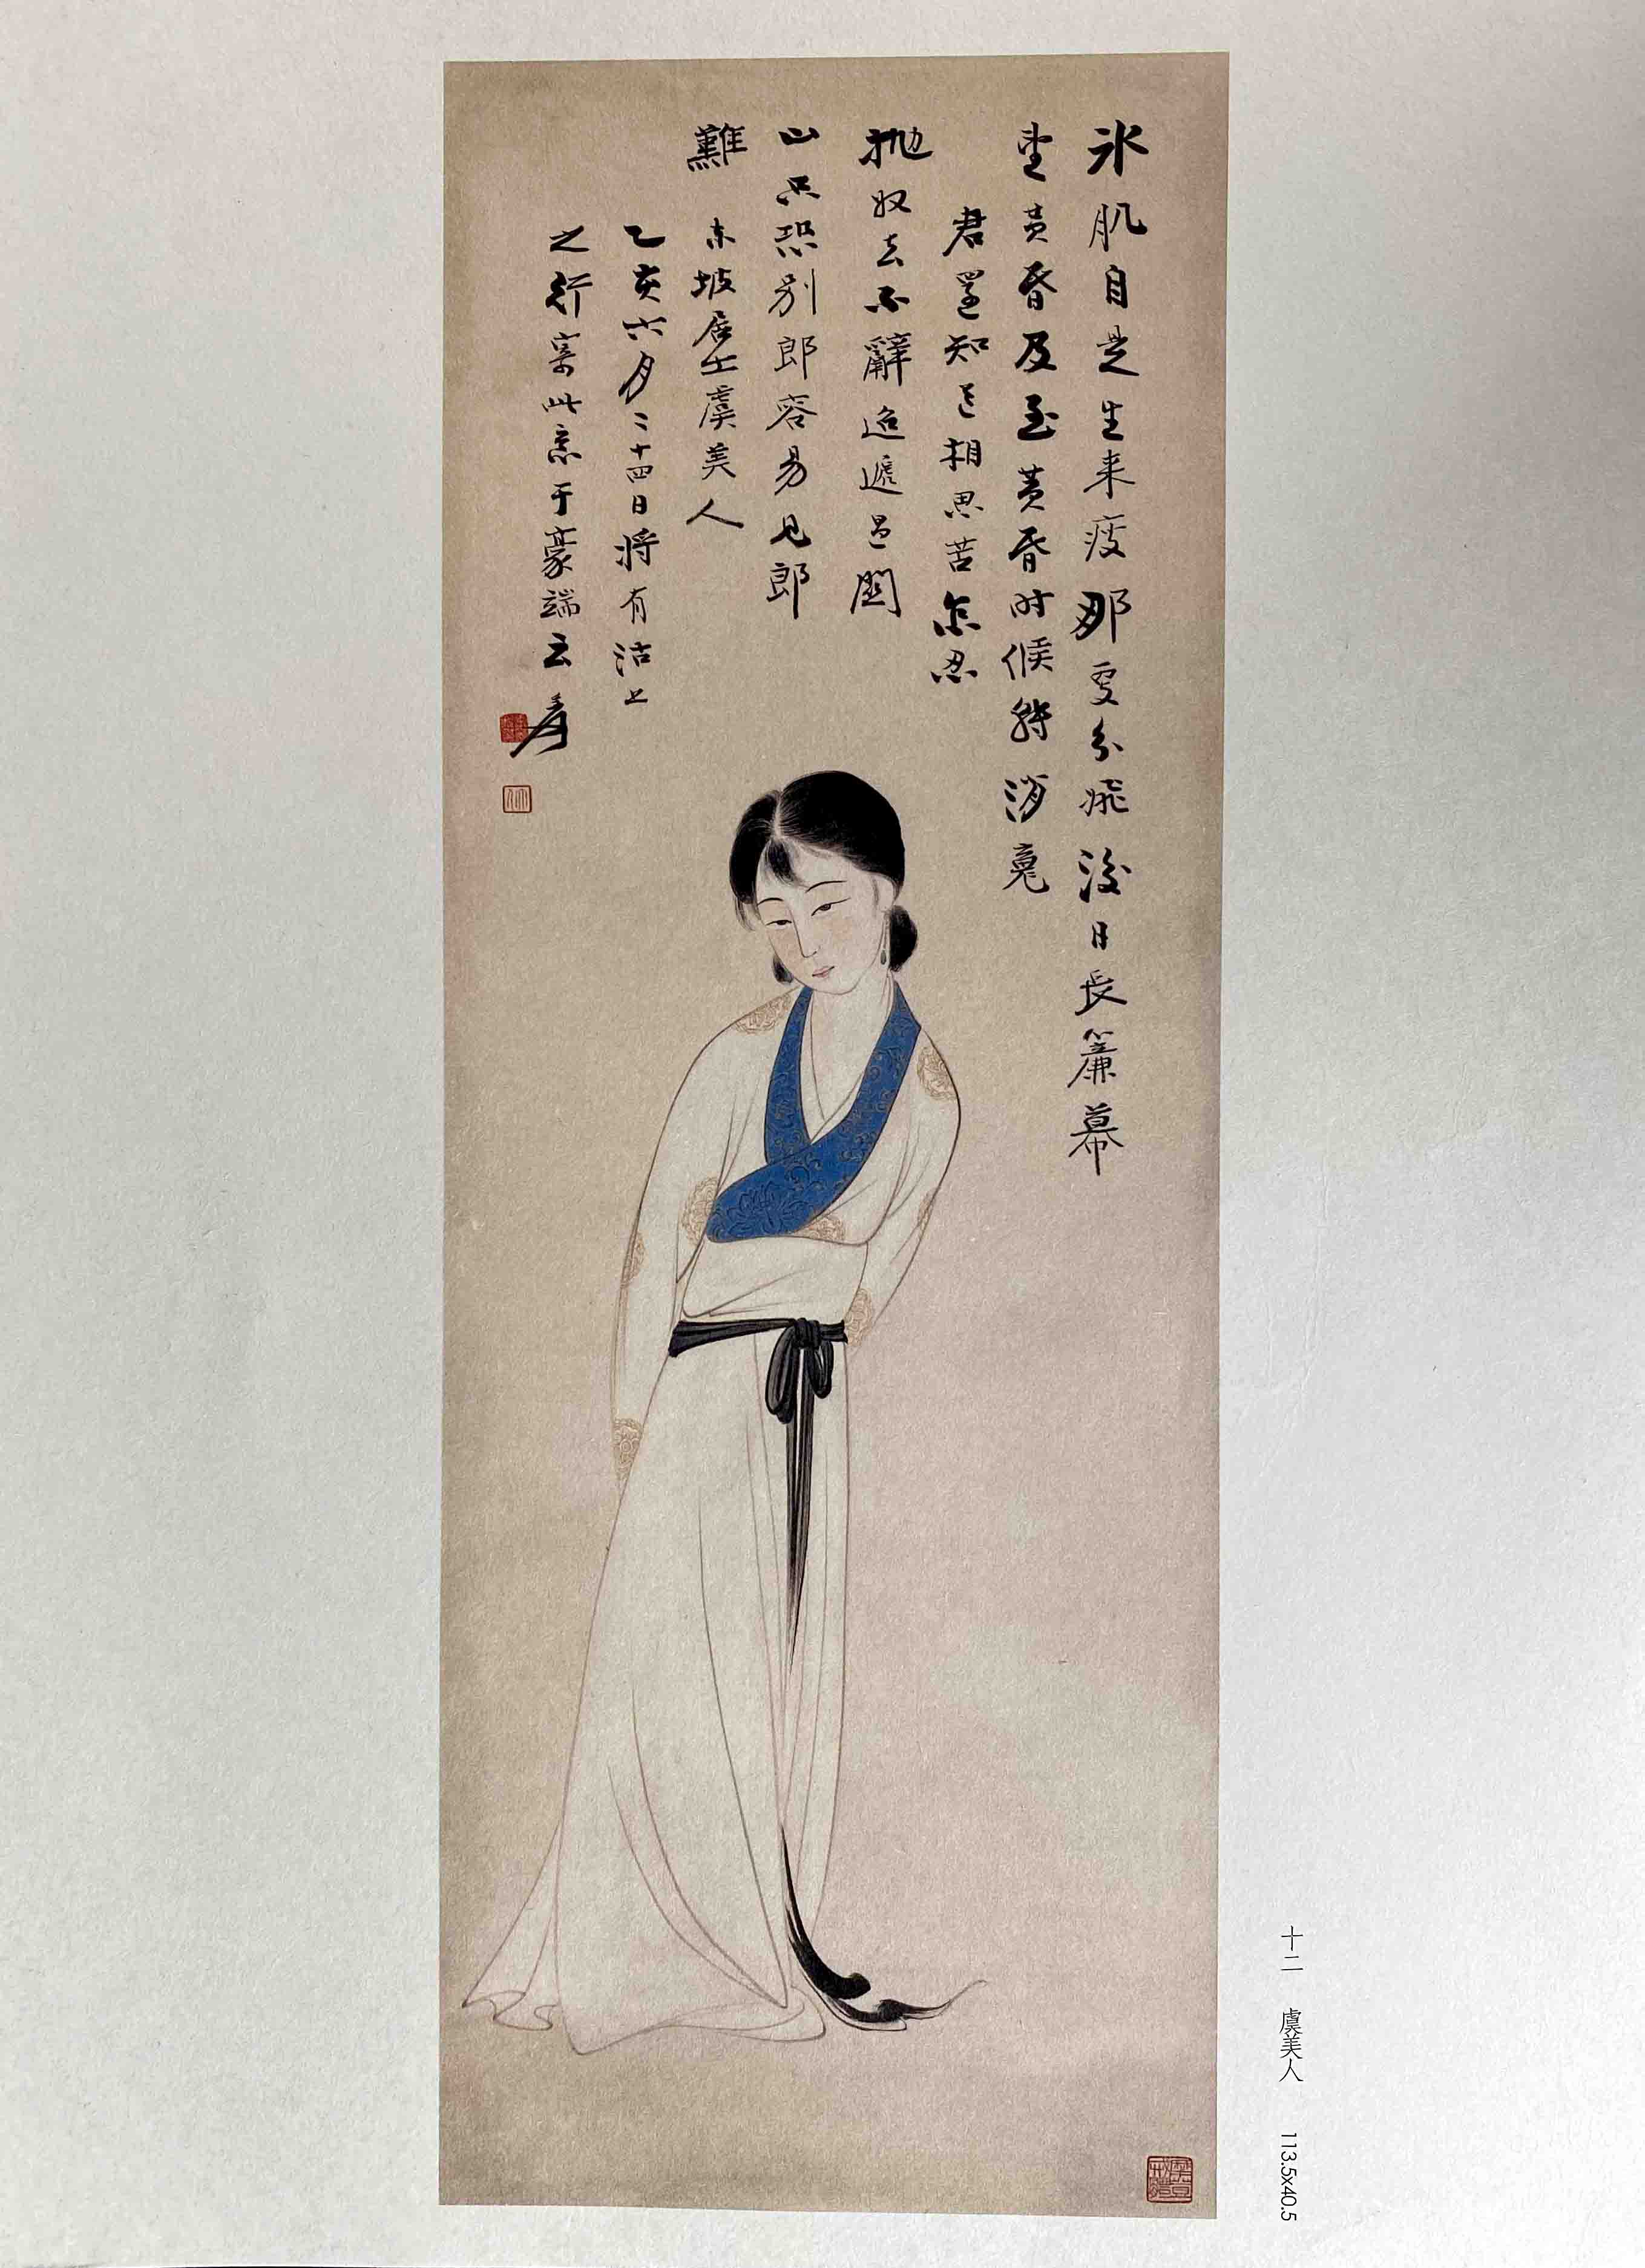 氷肌自是生来瘦那更分飛後日長簾幕
望黃昏及至黃昏时候轉消䰟
君還知道相思苦怎忍
抛奴去不辭迢遞過關
山只恐别郎容易見郎
難 東坡居士虞美人
乙亥六月二十四日将有沽上
之行寄此意于豪端云 爰
十二 虞美人 113.5x40.5